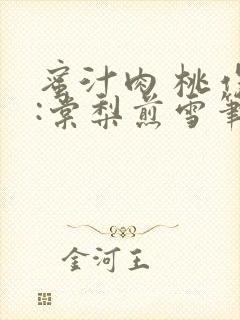 蜜汁肉桃作
:棠梨煎雪筆
金河王